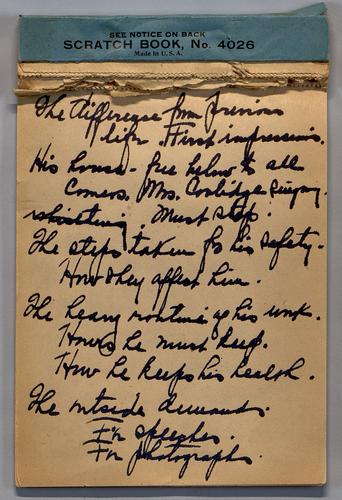 SEE NOTICE ON BACK
SCRATCH BOOK, No. 4026
Made in U.S.A.
The difference from previous
life. First impressions.
His house - free below to all
Comers. Mrs. Coolidge singing.
whistling. Must stop.
The steps taken for his safety.
How they affect him.
The heavy routine of his work.
Hours he must keep.
How he keeps his health.
The outside demands.
For speeches.
For photographs.